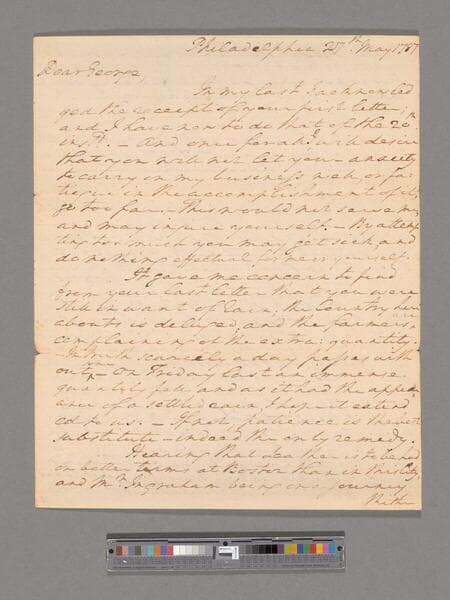 Philadelphia 27th May 1787
Dear George,
In my last I acknowled
ged the receipt of your first letter;
and I have now to do that of the 20th
inst. - And once for all I will desire
that you will not let your anxiety
to carry on my business well or fa-
tigue in the accomplishment of it,
go too far. - This would not serve me,
and may injure yourself. - By attemp
ting too much you may get sick and
do nothing effectual for me or yourself.
It gave me concern to find
from your last letter that you were
still in want of rain; the Country here
abouts is deluged, and the farmers are
complaining of the extra: quantity.
- In truth scarcely a day passes with
out, - On Friday last an immense
quantity fell, and as it had the appear
ance of a settled rain, I hope it extend
ed to us: - If not, patience is the best
substitute - indeed the only remedy.
Hearing that Leather is to be had
on better terms at Boston than in this City
and Mr. Ingraham being on a journey
thither